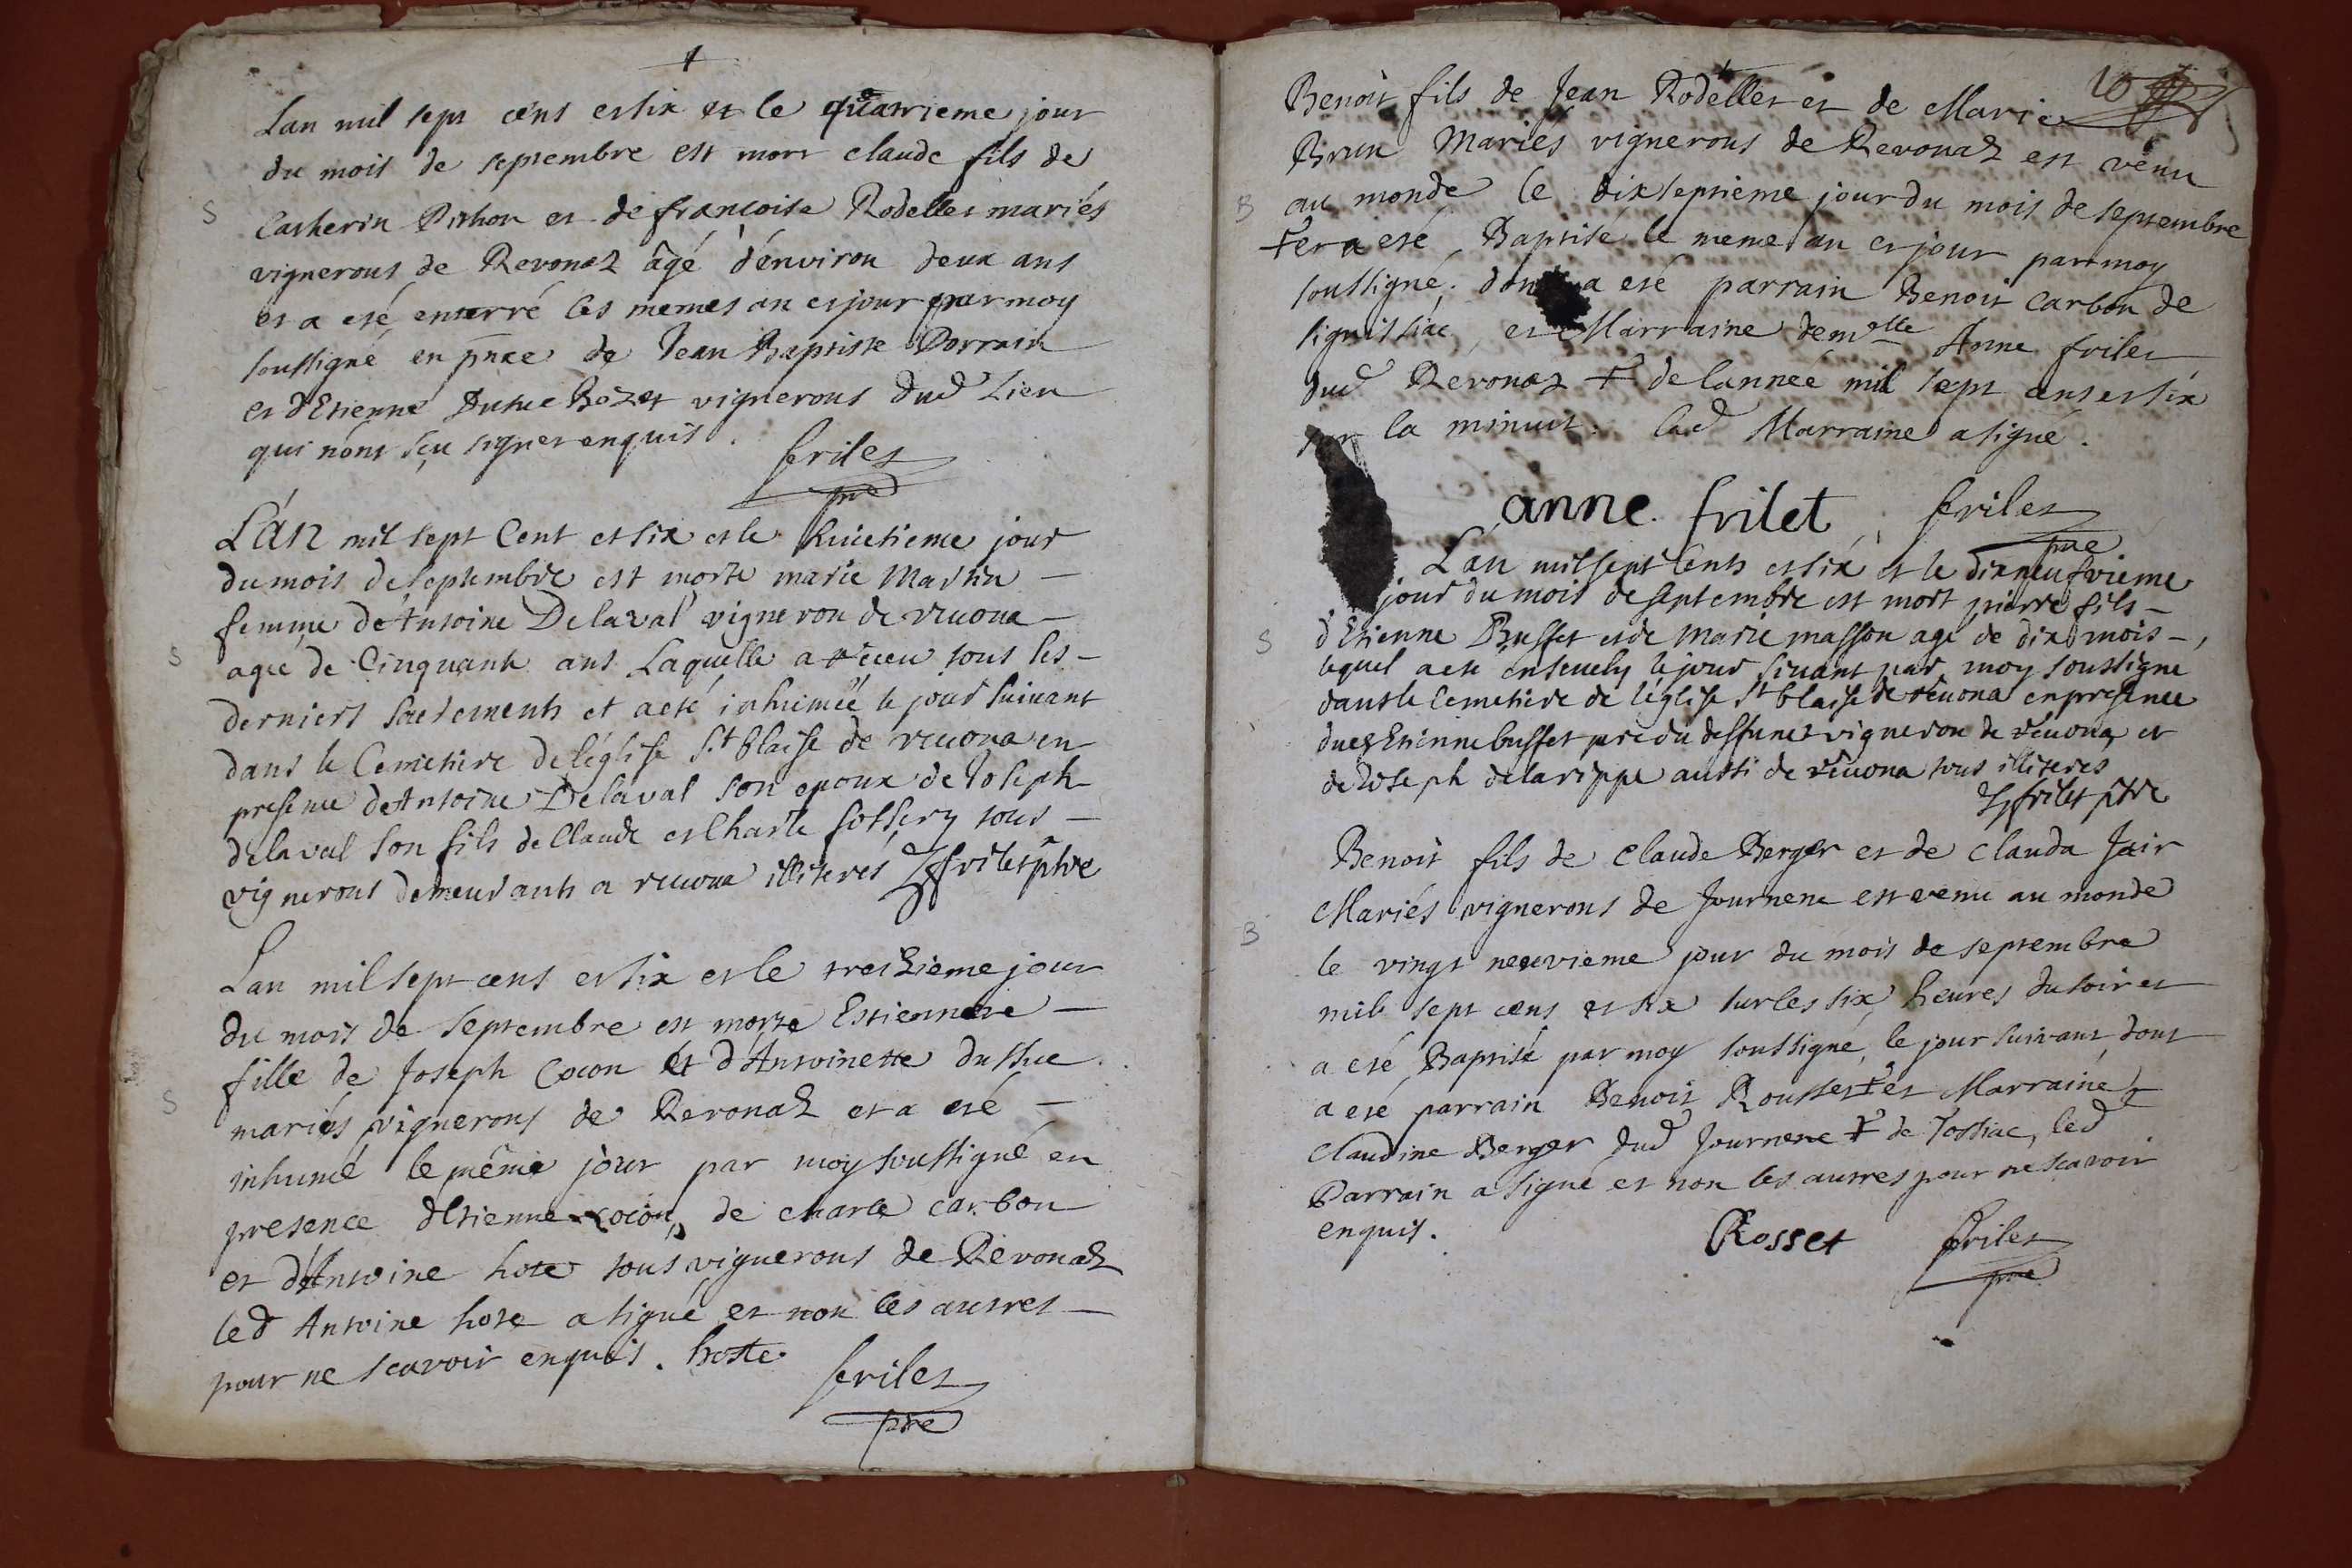 Lan mil sept cens et six et le quatrieme jour
du mois de septembre est mort claude fils de
S
Catherin Pithon et de francoise Rodellet mariés
vignerons de Revonaz âgé d'énviron deux ans
et a eté enterré les memes an et jour par moy
soussigné en pnce de Jean Baptiste Dorrain
et d'Etienne Duthe Bozet vignerons dud Lieu
qui n'ont sçu signer enquis.
frilet
pre
L'an mil sept Cent et six et le huictieme jour
du mois de septembre est morte marie Martin
femme de Antoine Delaval vigneron de reuona
S
agee de Cinquante ans Laquelle a receu tous les
derniers sacrements et a eté inhumée le jour suivant
dans le Cemetiere de l'église St blaise de reuona en
presence de Antoine Delaval son epoux de Joseph
delaval son fils de Claude et Charle sottery tous
vignerons demeurants a reuona illiteres frilet ptre
Lan mil sept cens et six et le treizieme jour
du mois de septembre est morte Estiennete
fille de Joseph Cocon et d'Antoinette duthue
S
mariés vignerons de Revonaz et a eté
inhumé le même jour par moy soussigné en
presence d'Etienne cocon, de charle carbon
et d'Antoine hote tous vignerons de Revonaz
led Antoine hote a signé et non les autres
pour ne scavoir enquis. hoste
frilet
pre
10
Benoit fils de Jean Rodellet et de Marie
Brun Mariés vignerons de Revonaz est venu
B
au monde le dixseptieme jour du mois de septembre
+ et a eté Baptisé le meme an et jour par moy
soussigné. dont a eté parrain Benoit Carbon de
signissiac, et Marraine demelle Anne frilet
dud Revonaz + de l'année mil sept cens et six
sur la minuit. lad Marraine a signé.
anne. frilet frilet
pre
Lan mil sept Cents et six et le dixneufvieme
jour du mois de septembre est mort pierre fils
S
d'Etienne Busset et de Marie masson age de dix mois,
lequel a ete ensevely le jour sivant par moy soussigne
dans le Cemetiere de l'église St blaise de réuona en presence
dud Etienne busset pere du deffunct vigneron de réuona et
de Joseph delarippe aussi de réuona tous illiteres
frilet ptre
Benoit fils de Claude Berger et de Clauda Jair
Mariés vignerons de Journene est venu au monde
B
le vingt neuvieme jour du mois de septembre
mil sept cens et six sur les six heures du soir et
a eté Baptisé par moy soussigné, le jour suivant, dont
a eté parrain Benoit Rousset + et Marraine
Claudine Berger dud Journene + de Tossiac, led
Parrain a signé et non les autres pour ne scavoir
enquis.
Rosset frilet
pre